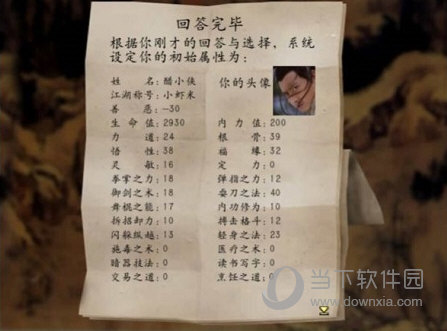 回答完毕
根据你刚才的回答与选择，系统
设定你的初始属性为：
姓 名：醋小侠 你的头像
江湖称号：小虾米
善 恶：-30
生 命 值：2930 内 力 值：200
力 道：24 根 骨：39
悟 性：38 福 缘：32
灵 敏：16 定 力：0
拳掌之力：18 弹指之力：12
御剑之术：18 耍刀之法：40
舞棍之能：17 内功修为：10
拆招卸力：10 搏击格斗：12
闪躲纵越：13 轻身之法：23
施毒之术：0 医疗之术：0
暗器技法：0 读书写字：0
交易之道：0 烹饪之道：0
当下软件园
www.downxia.com